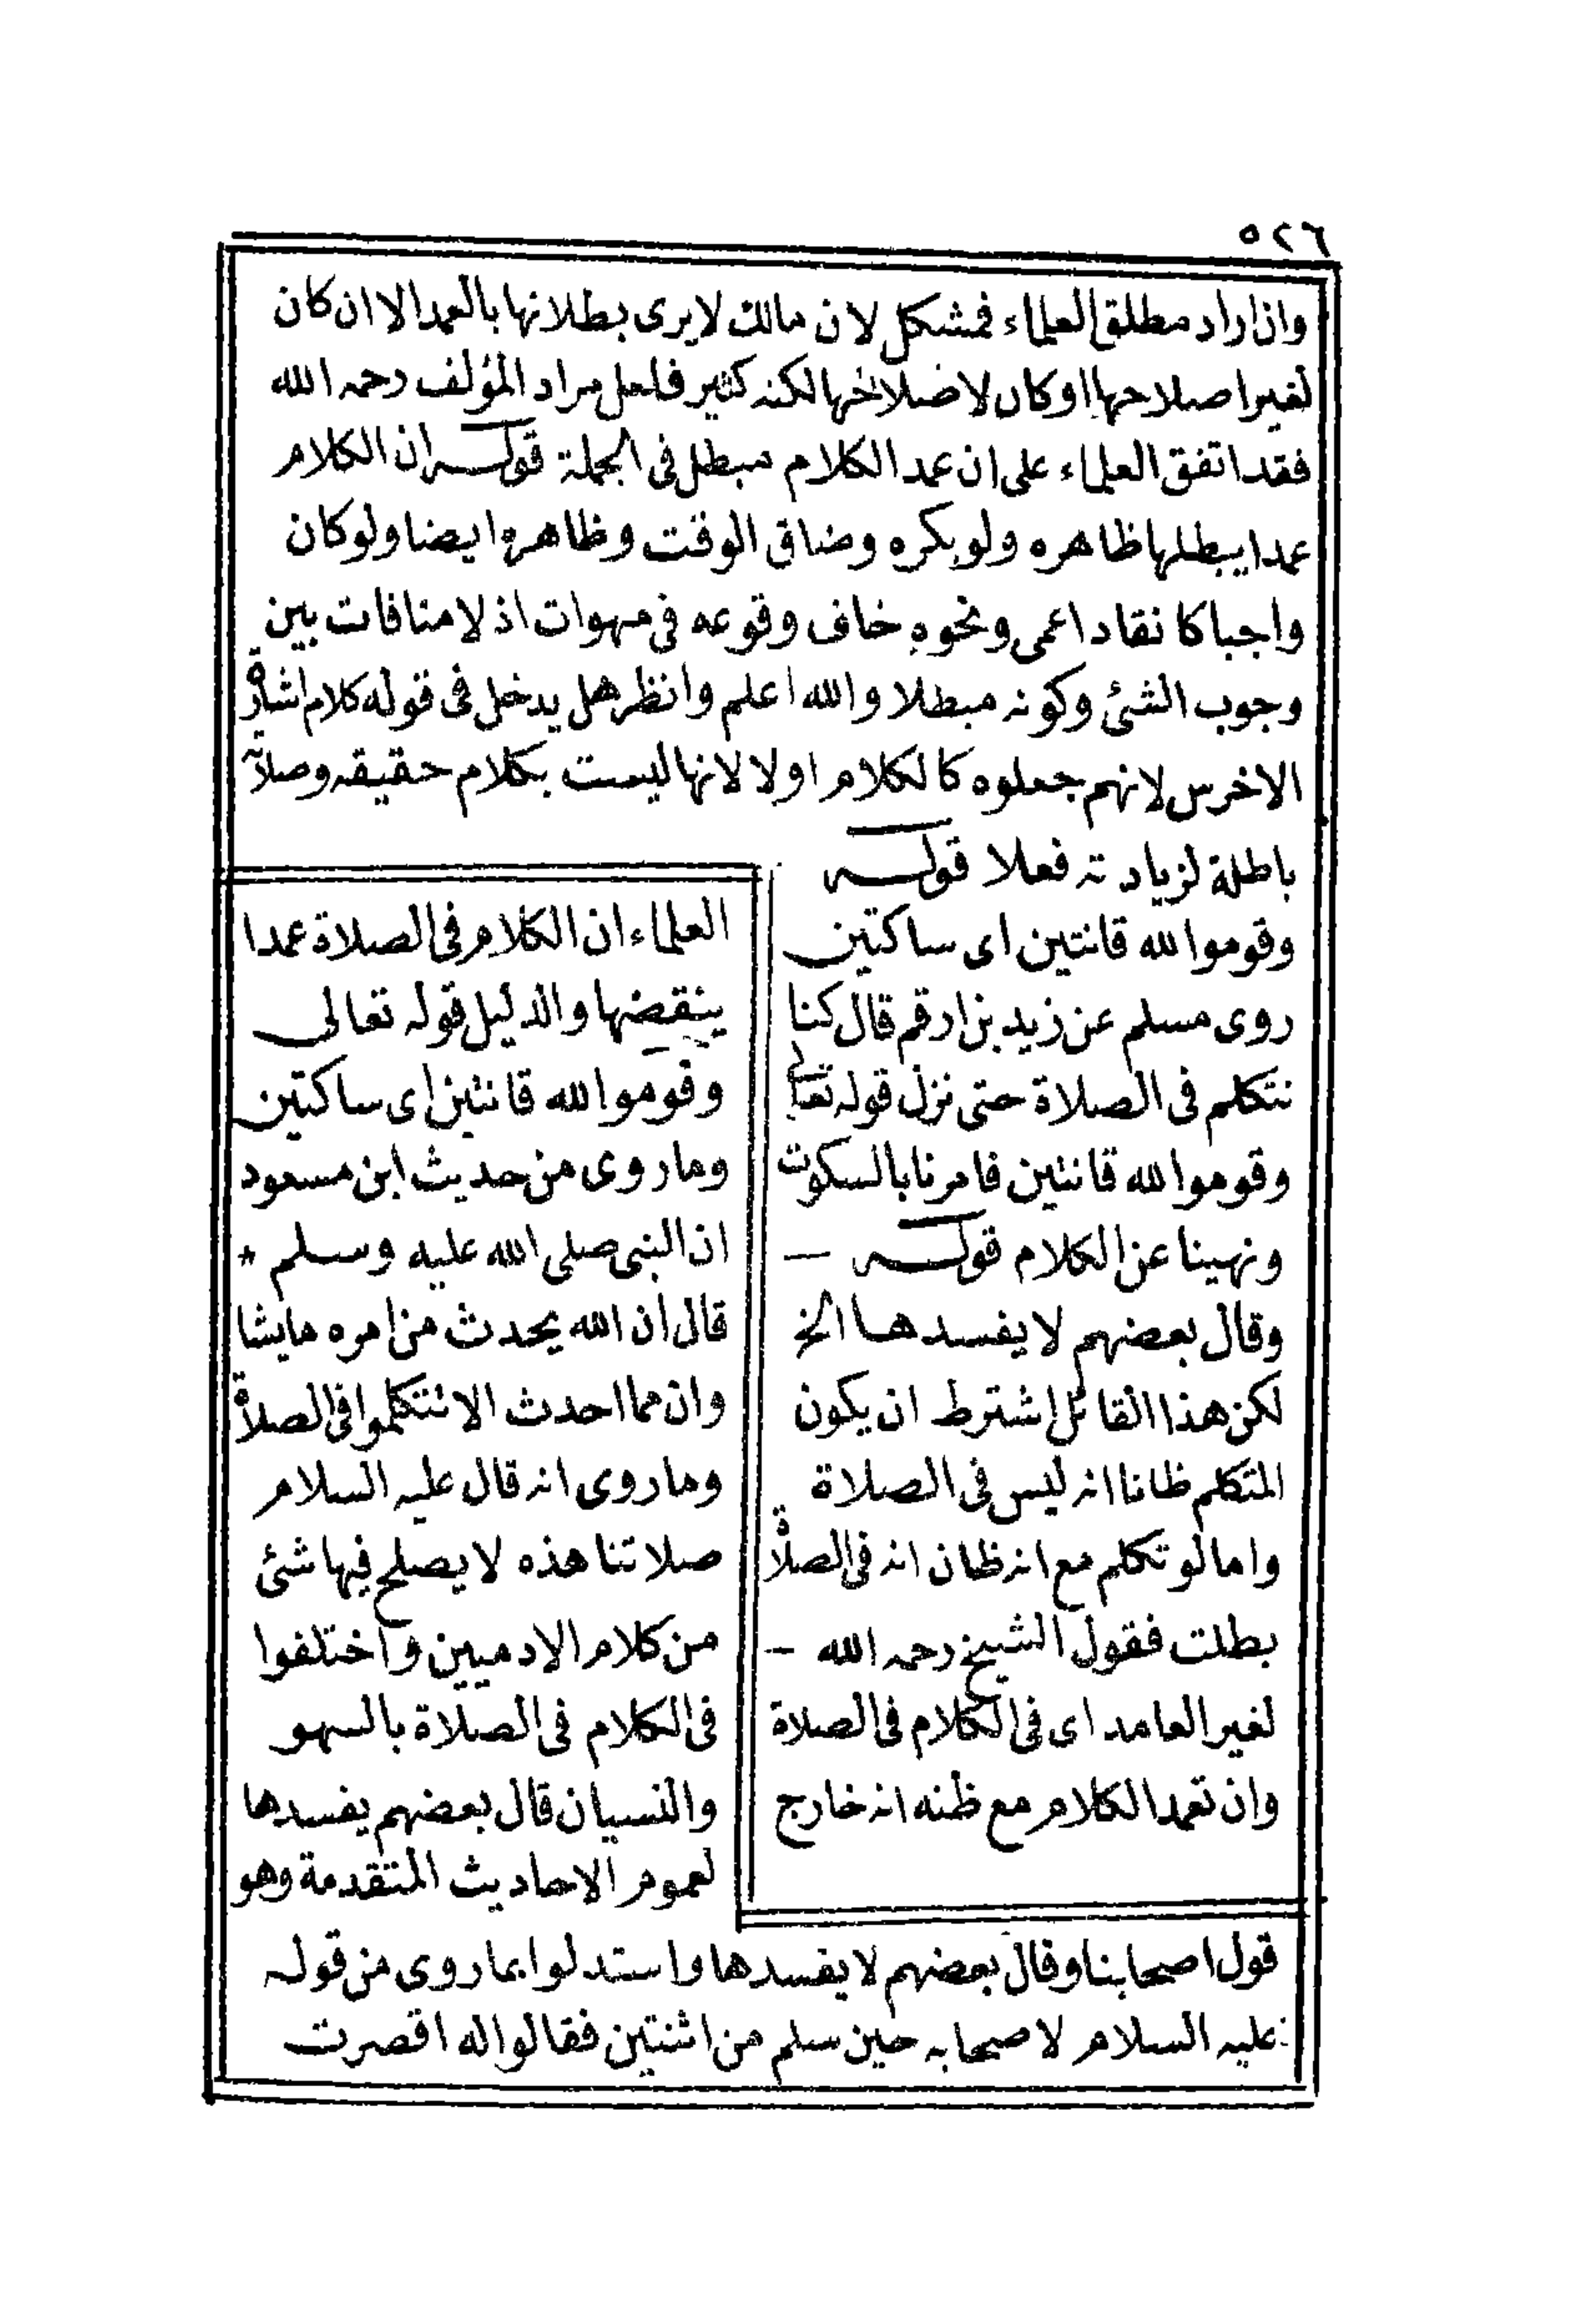 ٥٢٦
وان اراد مطلق العلماء فمشكل لان مالك لا يرى بطلانها بالعمد الا ان كان
لغير اصلاحها او كان لاصلاحها لكنه كثير فلعل مراد المؤلف رحمه الله
فقد اتفق العلماء على ان عمد الكلام مبطل فى الجملة قوله ان الكلام
عمدا يبطلها ظاهره ولو بكره وضاق الوقت وظاهره ايضا ولو كان
واجبا كانقاد اعمى ونحوه خاف وقوعه فى مهوات اذ لا منافات بين
وجوب الشئ وكونه مبطلا والله اعلم وانظر هل يدخل فى قوله كلام اشارة
الاخرس لانهم جعلوه كالكلام اولا لانها ليست بكلام حقيقه وصلاته
باطلة لزيادته فعلا قوله
وقوموا لله قانتين اى ساكتين
روى مسلم عن زيد بن ارقم قال كنا
نتكلم فى الصلاة حتى نزل قوله تعالى
وقوموا لله قانتين فامرنا بالسكوت
ونهينا عن الكلام قوله —
وقال بعضهم لا يفسدها الخ
لكن هذا القائل اشترط ان يكون
المتكلم ظانا انه ليس فى الصلاة
واما لو تكلم مع انه ظان انه فى الصلاة
بطلت فقول الشيخ رحمه الله —
لغير العامد اى فى الكلام فى الصلاة
وان تعمد الكلام مع ظنه انه خارج
العلماء ان الكلام فى الصلاة عمدا
ينقضها والدليل قوله تعالى
وقوموا لله قانتين اى ساكتين
وما روى من حديث ابن مسعود
ان النبى صلى الله عليه وسلم *
قال ان الله يحدث من امره ما يشا
وان مما احدث الا تتكلموا فى الصلاة
وما روى انه قال عليه السلام
صلاتنا هذه لا يصلح فيها شئ
من كلام الادميين واختلفوا
فى الكلام فى الصلاة بالسهو
والنسيان قال بعضهم يفسدها
لعموم الاحاديث المتقدمة وهو
قول اصحابنا وقال بعضهم لا يفسدها واستدلوا بما روى من قوله
عليه السلام لاصحابه حين سلم من اثنتين فقالوا له اقصرت